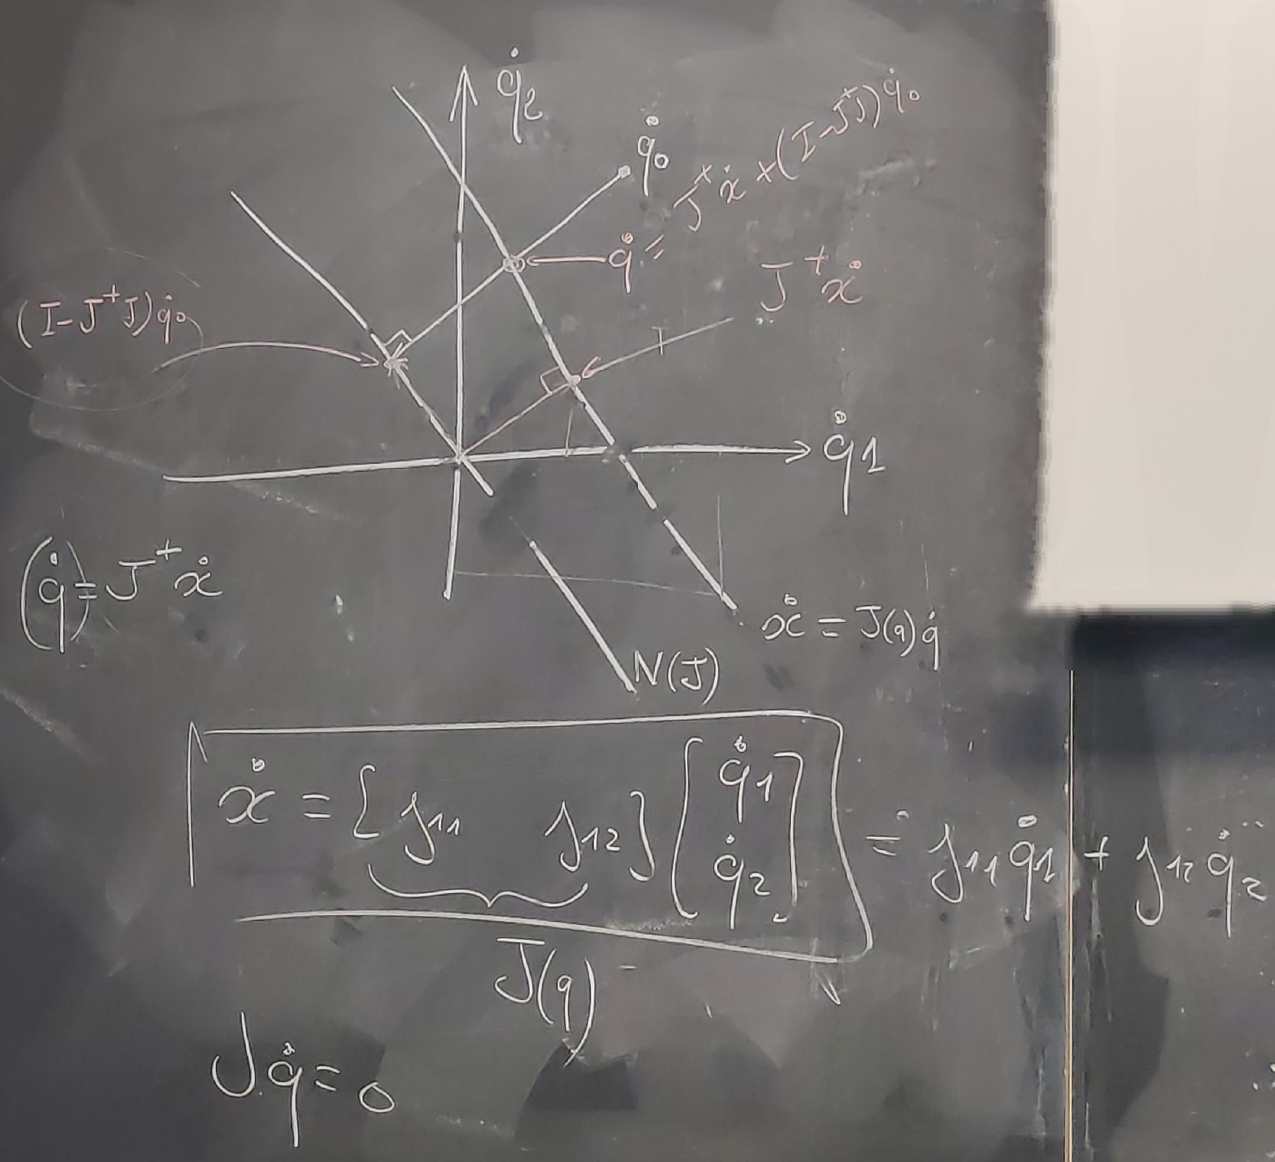 q̇2
q̇0
q̇ = J⁺ẋ + (I-J⁺J)q̇0
J⁺ẋ
(I-J⁺J)q̇0
q̇1
(q̇) = J⁺ẋ
ẋ = J(q)q̇
N(J)
ẋ = [j11 j12] [q̇1 q̇2] = j11 q̇1 + j12 q̇2
J(q)
J.q̇ = 0